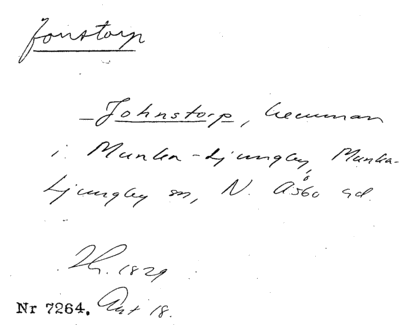 Jonstorp
– Johnstorp, hemman
i Munka-Ljungby, Munka-
Ljungby sn, N. Åsbo hd.
1829
Nr 7264. 18.